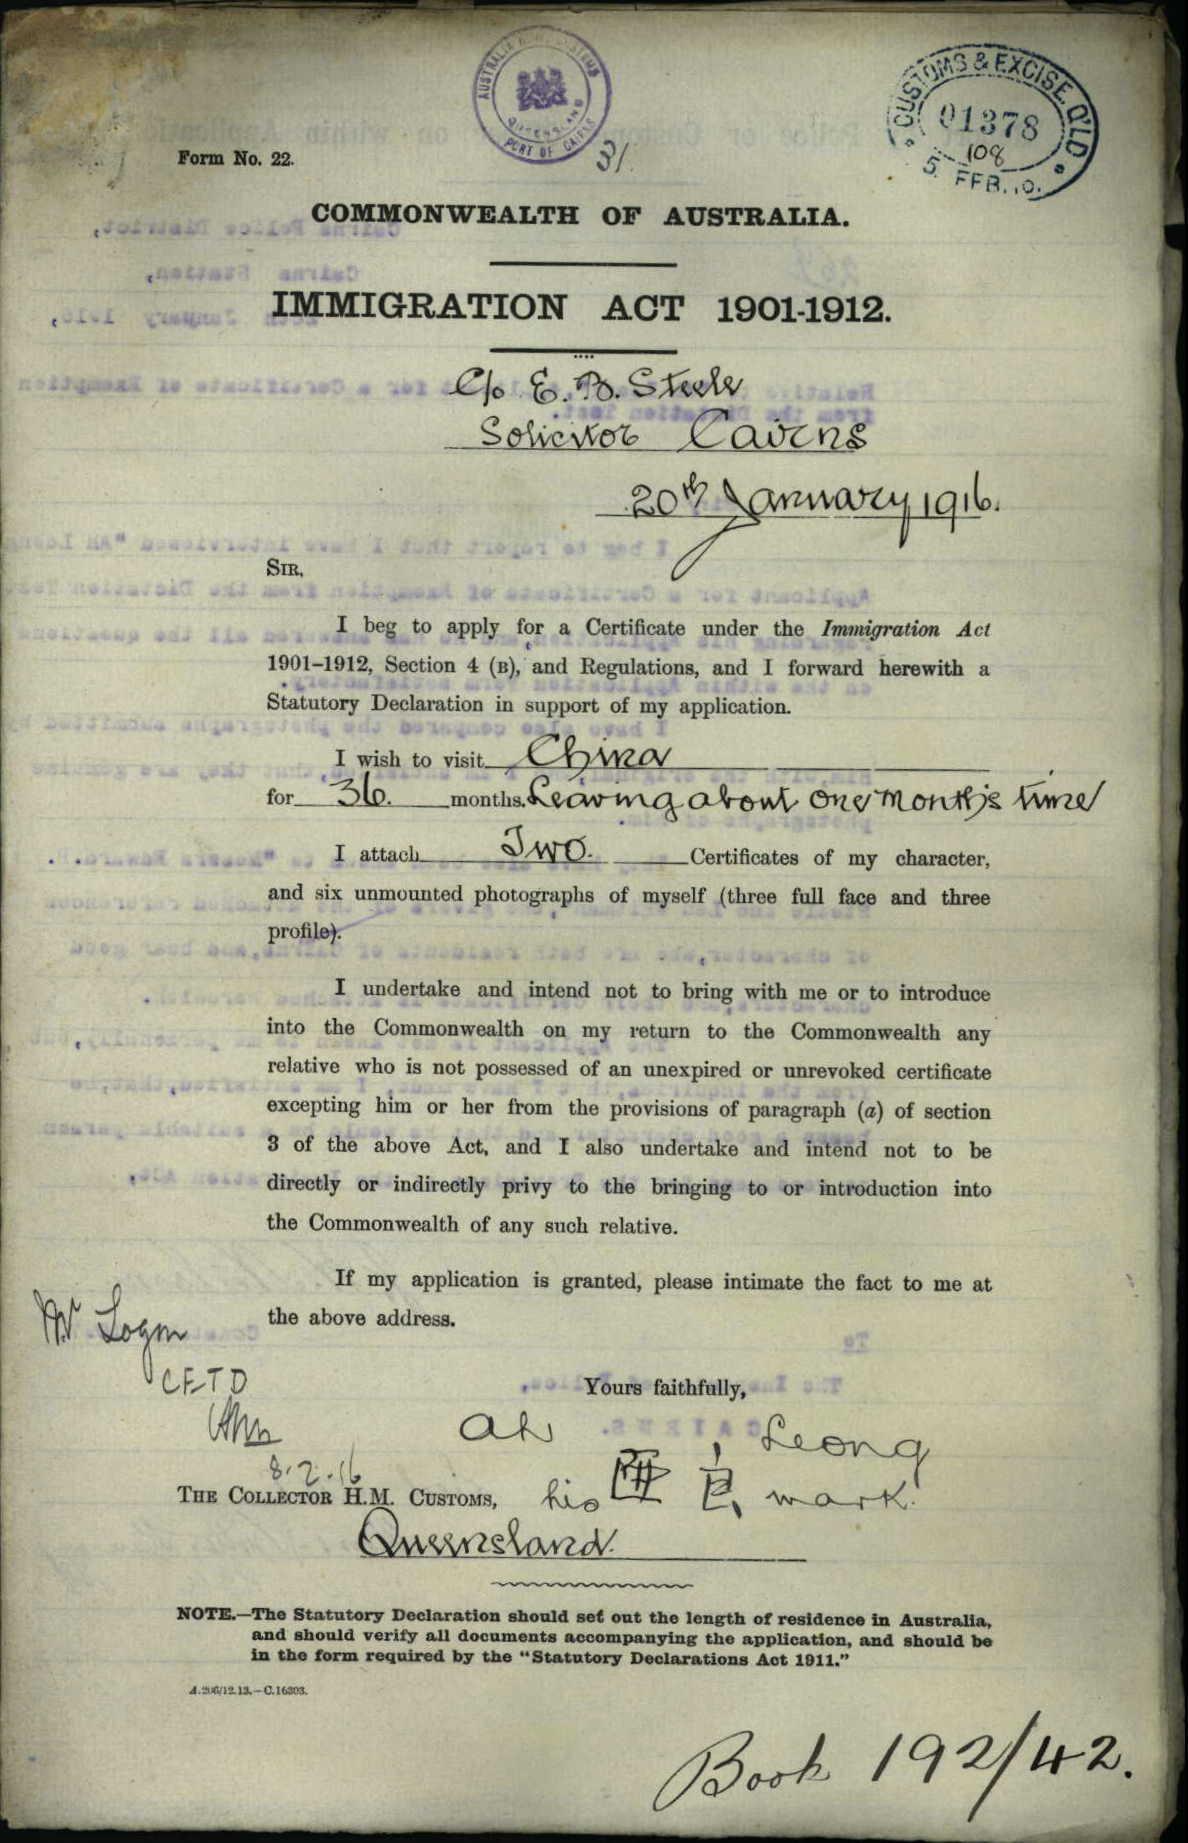 AUSTRALIA H.M. CUSTOMS
QUEENSLAND
PORT OF CAIRNS
31.
CUSTOMS & EXCISE. Q'LD
01378
108
5. FEB.
Form No. 22.
COMMONWEALTH OF AUSTRALIA.
IMMIGRATION ACT 1901-1912.
C/o E. B. Steele
Solicitor Cairns
20th January 1916.
SIR,
I beg to apply for a Certificate under the Immigration Act
1901–1912, Section 4 (B), and Regulations, and I forward herewith a
Statutory Declaration in support of my application.
I wish to visit China
for 36. months. Leaving about one month's time
I attach Two. Certificates of my character,
and six unmounted photographs of myself (three full face and three
profile).
I undertake and intend not to bring with me or to introduce
into the Commonwealth on my return to the Commonwealth any
relative who is not possessed of an unexpired or unrevoked certificate
excepting him or her from the provisions of paragraph (a) of section
3 of the above Act, and I also undertake and intend not to be
directly or indirectly privy to the bringing to or introduction into
the Commonwealth of any such relative.
If my application is granted, please intimate the fact to me at
the above address.
Mr Logan
CETD
8.2.16
Yours faithfully,
Ah Leong
his 亞良 mark.
THE COLLECTOR H.M. CUSTOMS,
Queensland.
NOTE.—The Statutory Declaration should set out the length of residence in Australia,
and should verify all documents accompanying the application, and should be
in the form required by the "Statutory Declarations Act 1911."
A.206/12.13.—C.16303.
Book 192/42.